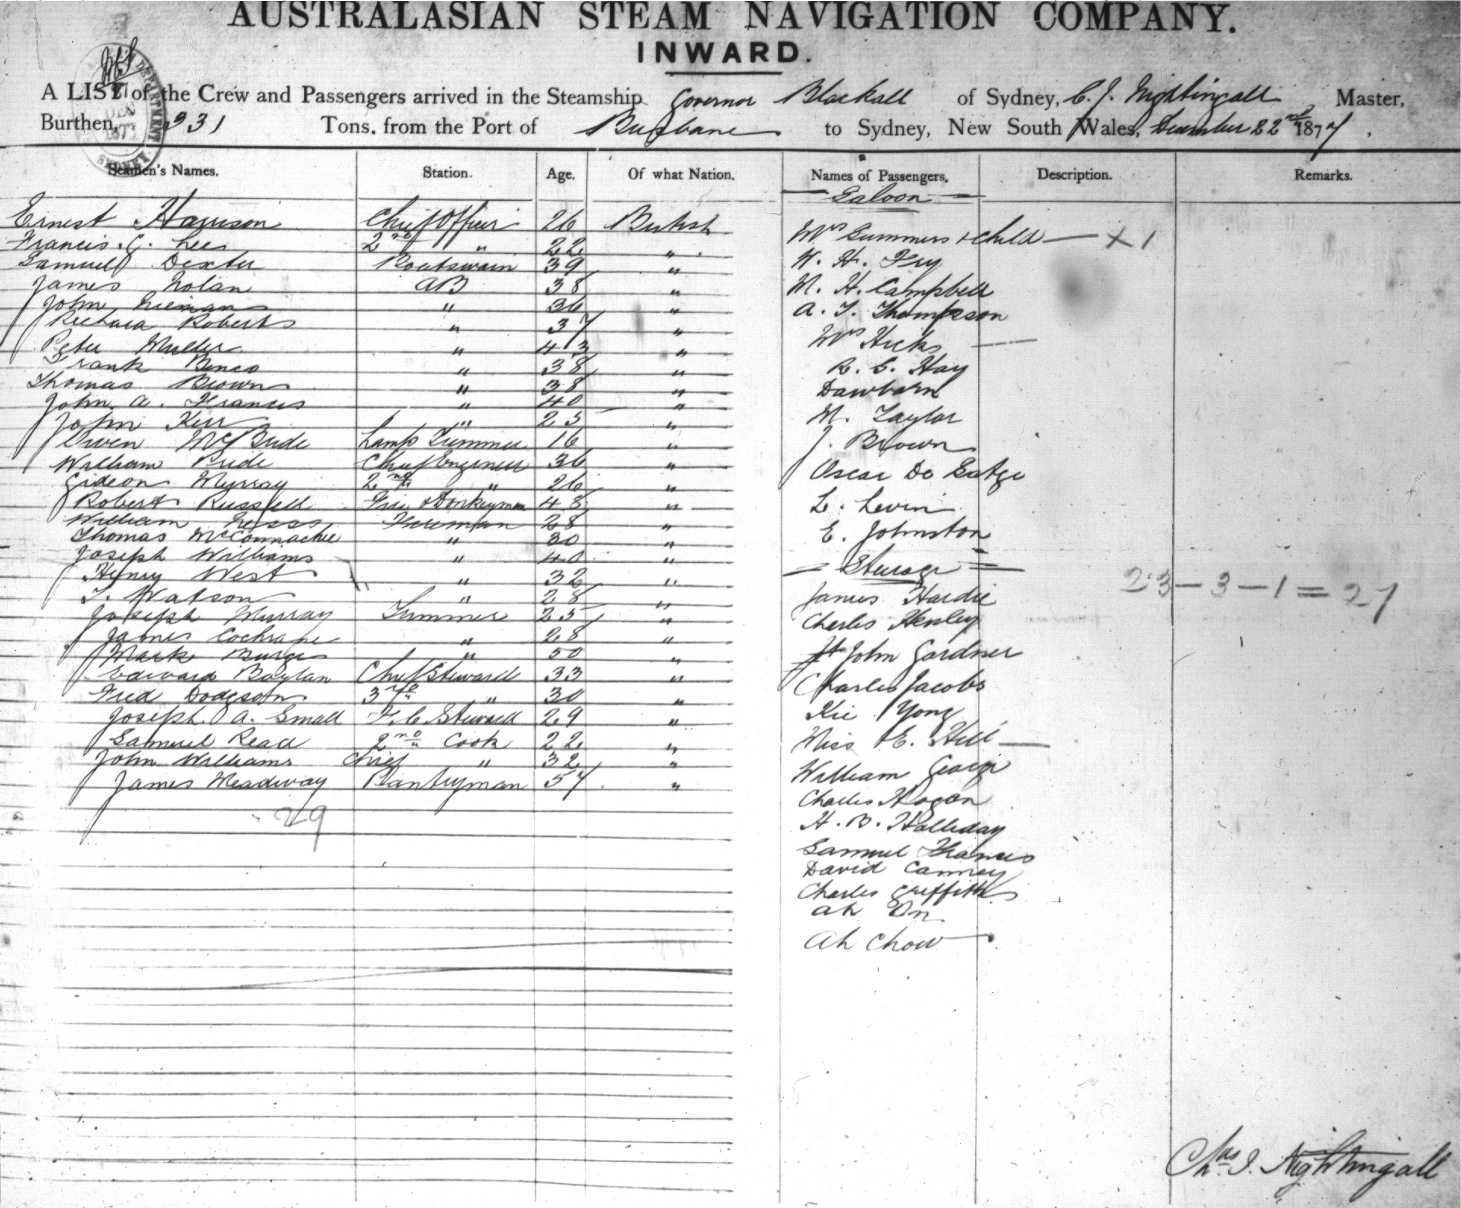 AUSTRALASIAN STEAM NAVIGATION COMPANY.
INWARD.
A LIST of the Crew and Passengers arrived in the Steamship Governor Blackall of Sydney, C. J. Nightingall Master,
Burthen, 931 Tons, from the Port of Brisbane to Sydney, New South Wales, December 22nd 1877.
Seamen's Names. Station. Age. Of what Nation. Names of Passengers. Description. Remarks.
Ernest Harrison Chief Officer 26 British
Francis G. Lee 2nd " 22 "
Samuel Dexter Boatswain 39 "
James Nolan AB 38 "
John " 36 "
Richard Roberts " 37 "
Peter " 43 "
Frank " 38 "
Thomas Brown " 38 "
John A. Francis " 40 "
John Kerr " 25 "
Owen McBride Lamp Trimmer 16 "
William Pride Chief Engineer 36 "
Gideon Murray 2nd " 26 "
Robert Russell Fire & Donkeyman 48 "
William Fireman 28 "
Thomas McConnachie " 30 "
Joseph Williams " 40 "
Henry West " 32 "
T. Watson " 28 "
Joseph Murray Trimmer 25 "
James Cochrane " 28 "
Mark " 50 "
Edward Boylan Chief Steward 33 "
Fred Dodgson 3rd " 30 "
Joseph A. Small F. C. Steward 29 "
Samuel Read 2nd Cook 22 "
John Williams Chief " 32 "
James Meadway Pantryman 57 "
29
Saloon
Mrs Summers & Child — X 1
W. H. Fry
M. H. Campbell
A. T. Thompson
Mrs Hicks —
R. S. Hay
Dawbarn
M. Taylor
J. Brown
Oscar De Satge
L. Levin
E. Johnston
Steerage
James Hardie
Charles Henley
John Gardner
Charles Jacobs
Kie Yong
Miss E. Hill —
William George
Charles Hogan
H. B. Halliday
Samuel Francis
David Canney
Charles Griffiths
Ah On
Ah Chow
23 — 3 — 1 = 27
Chas J. Nightingall